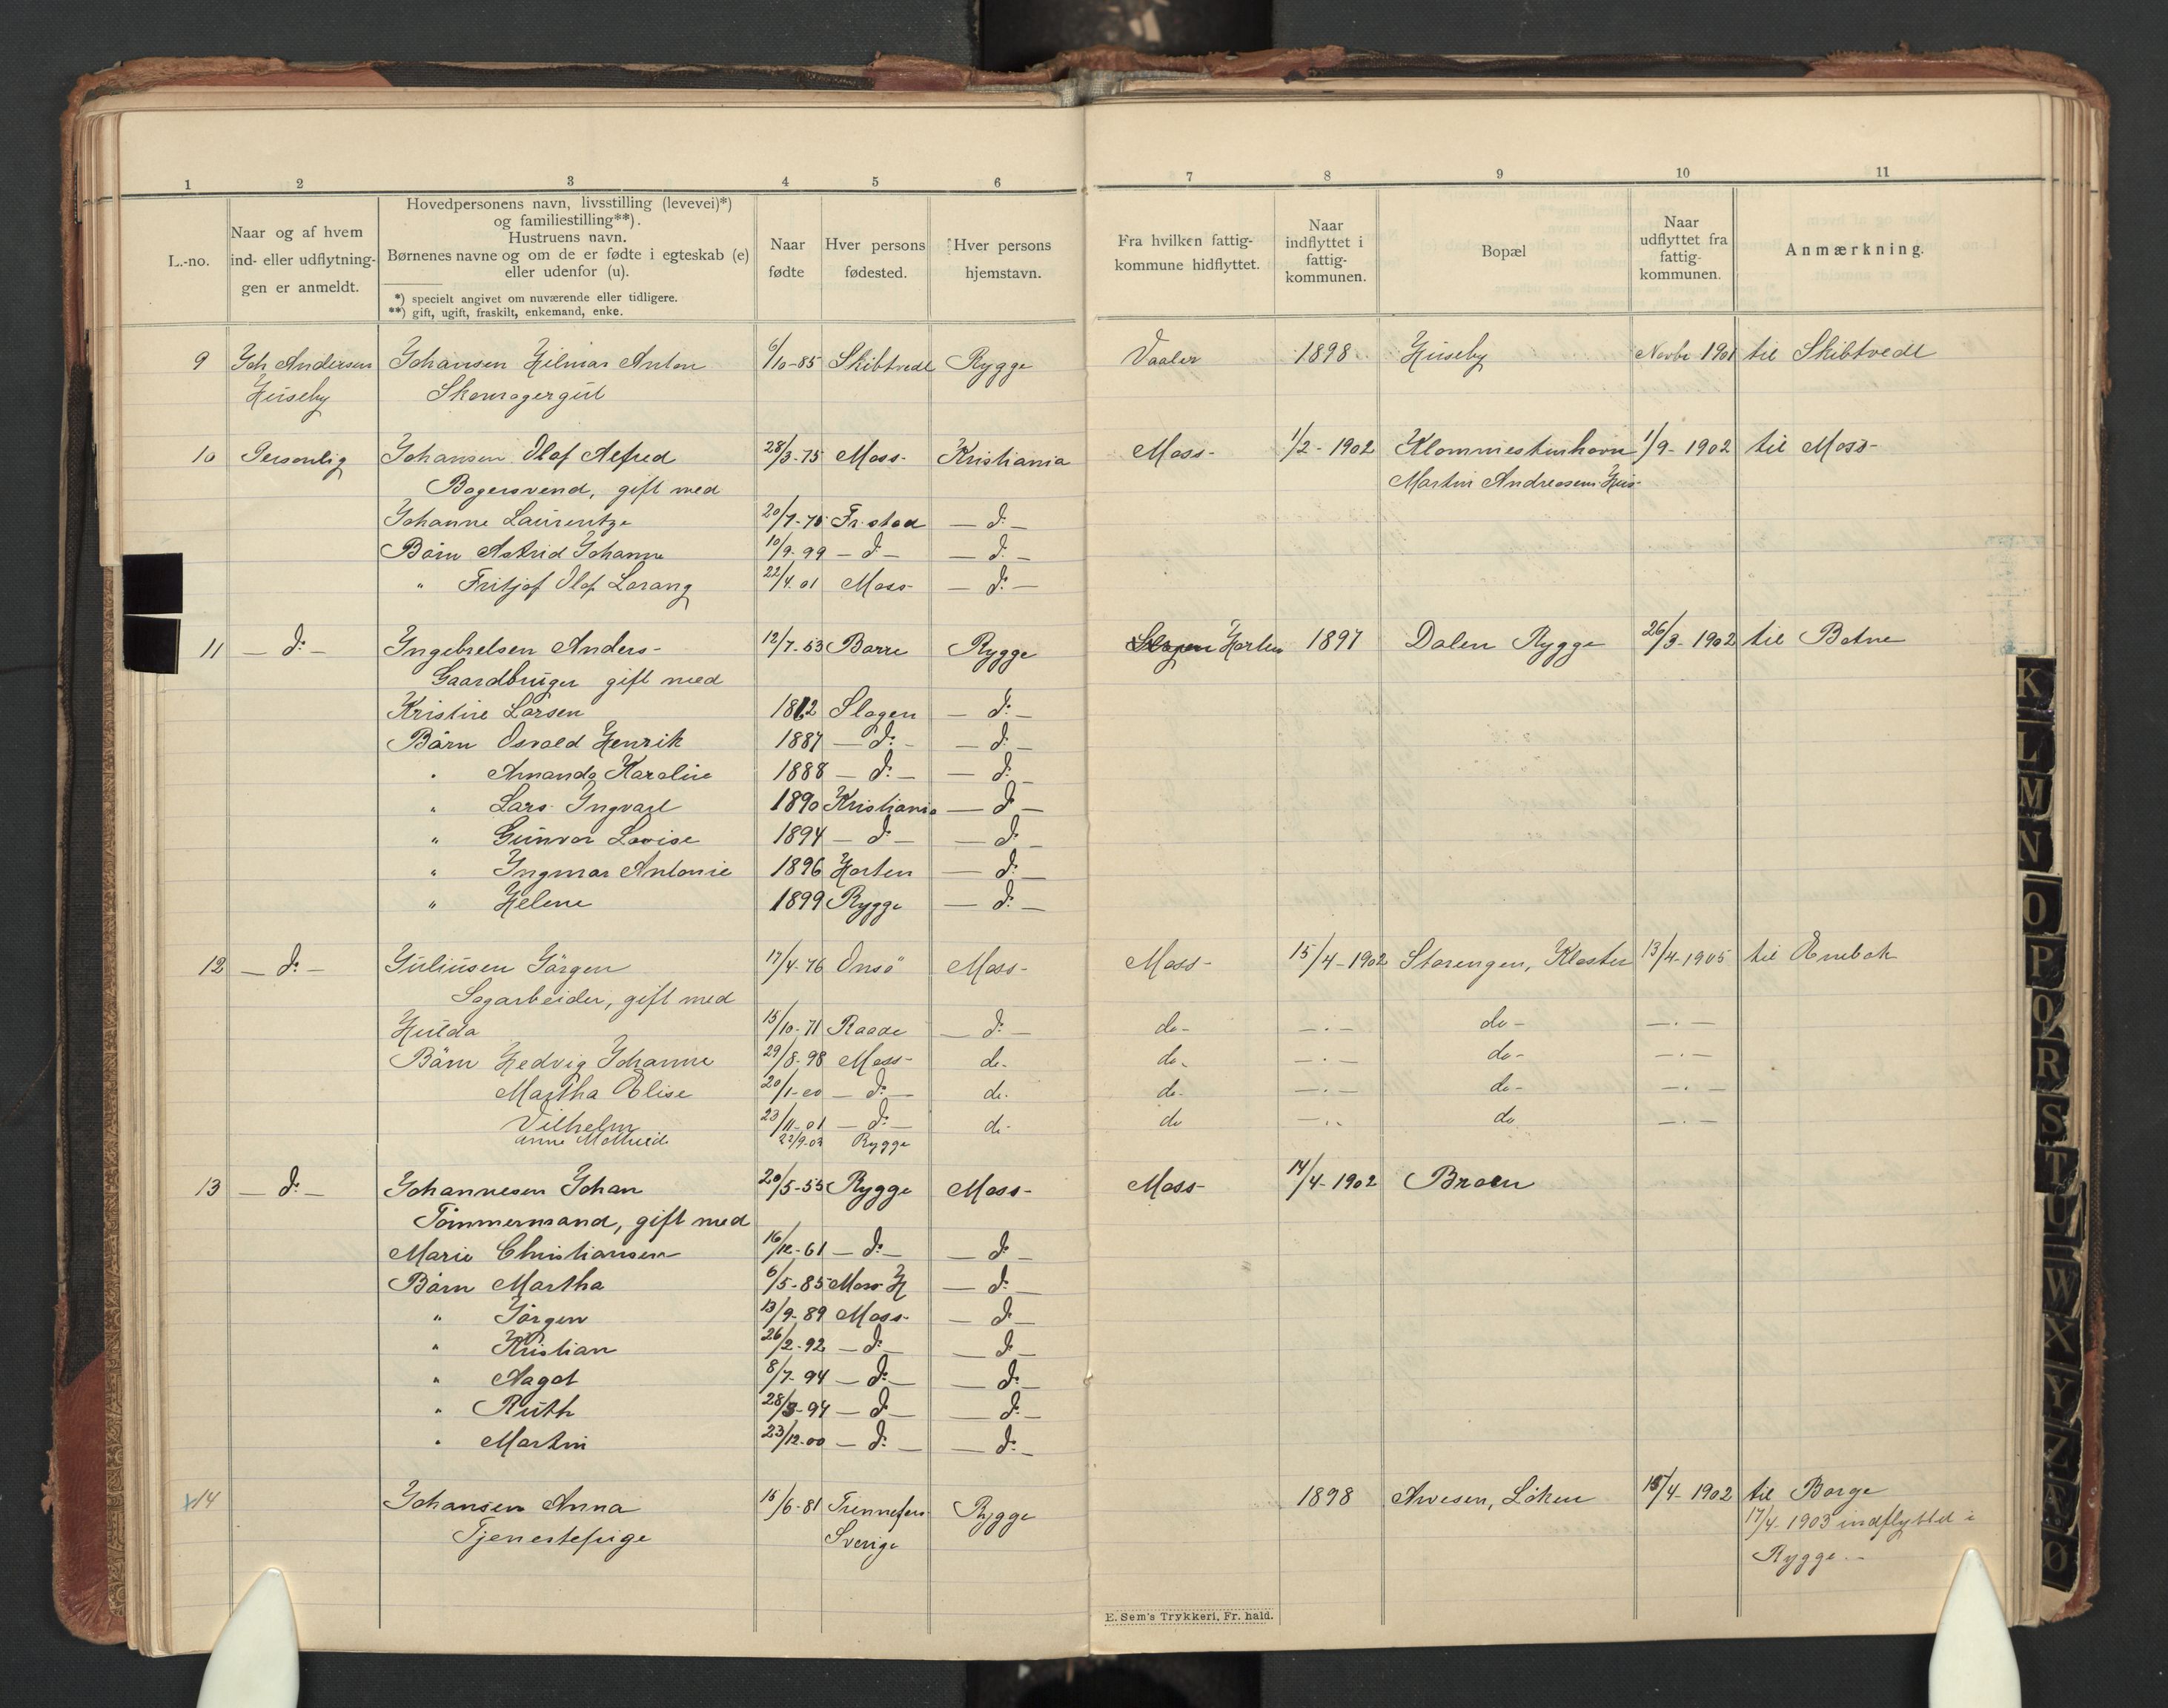 1 2 3 4 5 6 7 8 9 10 11
L.-no.
Naar og af hvem
ind- eller udflytnin-
gen er anmeldt.
Hovedpersonens navn, livsstilling (levevei)*)
og familiestilling**).
Hustruens navn.
Børnenes navne og om de er fødte i egteskab (e)
eller udenfor (u).
*) specielt angivet om nuværende eller tidligere.
**) gift, ugift, fraskilt, enkemand, enke.
Naar
fødte
Hver persons
fødested.
Hver persons
hjemstavn.
Fra hvilken fattig-
kommune hidflyttet.
Naar
indflyttet i
fattig-
kommunen.
Bopæl
Naar
udflyttet fra
fattig-
kommunen.
Anmærkning.
9 Joh Andersen Johansen Hilmar Anton 6/10-85 Skibtvedt Rygge Vaaler 1898 Huseby Novbr 1901 til Skibtvedt
Huseby Skomagergut
10 Personlig Johansen Olaf Alfred 28/3-75 Moss- Kristiania Moss- 1/2-1902 Klommestenhavn 1/9-1902 til Moss-
Bagersvend, gift med Martin Andreasens Hus
Johanne Laurentze 20/7-75 Fr.stad — d: —
Børn Astrid Johanne 10/9-99 — d — — d: —
" Fritjof Olaf Lorang 22/4.01 Moss- — d: —
11 — d: — Ingebretsen Anders- 12/7-53 Borre Rygge Slagen Horten 1897 Dalen Rygge 26/3-1902 til Botne
Gaardbruger gift med
Kristine Larsen 1862 Slagen — d: —
Børn Osvald Henrik 1887 — d: — — d: —
" Amanda Karoline 1888 — d: — — d: —
" Lars Ingvart 1890 Kristiania — d —
" Gunvor Lovise 1894 — d — — d —
" Ingmar Antonie 1896 Horten — d: —
" Helene 1899 Rygge — d: —
12 — d: — Juliusen Jørgen 17/4-76 Onsö Moss- Moss- 15/4-1902 Storengen, Kloster 13/4-1905 til Enebak
Sagarbeider, gift med
Hulda 15/10-71 Raade — d: — do- —·— do- —·—
Børn Hedvig Johanne 29/8-98 Moss- do- do- —·— do- —·—
Martha Elise 20/1-00 — d: — do- do- —·— do- —·—
Vilhelm 23/11-01 — d: — do- do —·· do —·—
Anna 22/9-03 Rygge
13 — d: — Johannesen Johan 20/5-55 Rygge Moss- Moss- 14/4-1902 Braen
Tømmermand, gift med
Marie Christiansen 16/12-61 — d: — — d: —
Børn Martha 6/5-85 Moss H — d: —
" Jørgen 13/9-89 Moss- — d: —
" Kristian 26/2-92 — d: — — d: —
" Aagot 8/7-94 — d: — — d: —
" Ruth 28/3-97 — d — — d: —
" Martin 23/12-00 — d: — — d: —
x14 Johansen Anna 15/6-81 Rygge 1898 Arvesen, Löken 15/4-1902 til Borge
Tjenestepige Sverige 17/4-1903 indflyttet i
Rygge.—
E. Sem's Trykkeri, Fr. hald.
K
L
M
N
O
P
Q
R
S
T
U
W
X
Y
Z
Æ
Ø